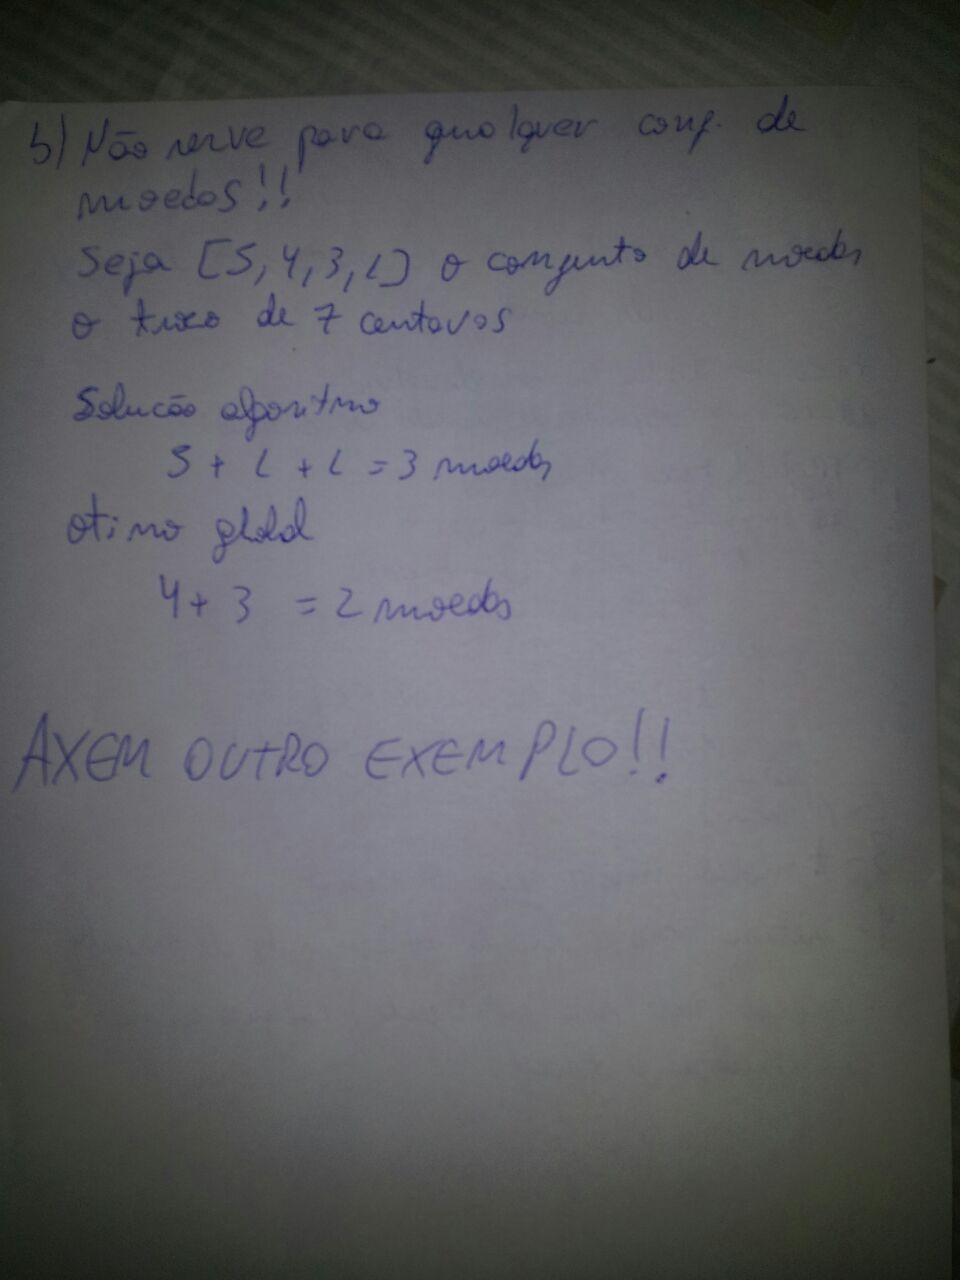 b) Não serve para qualquer conj. de
moedas!!
Seja [5,4,3,1] o conjunto de moedas
o troco de 7 centavos
Solução algoritmo
5 + 1 + 1 = 3 moedas
otimo global
4 + 3 = 2 moedas
AXEM OUTRO EXEMPLO!!